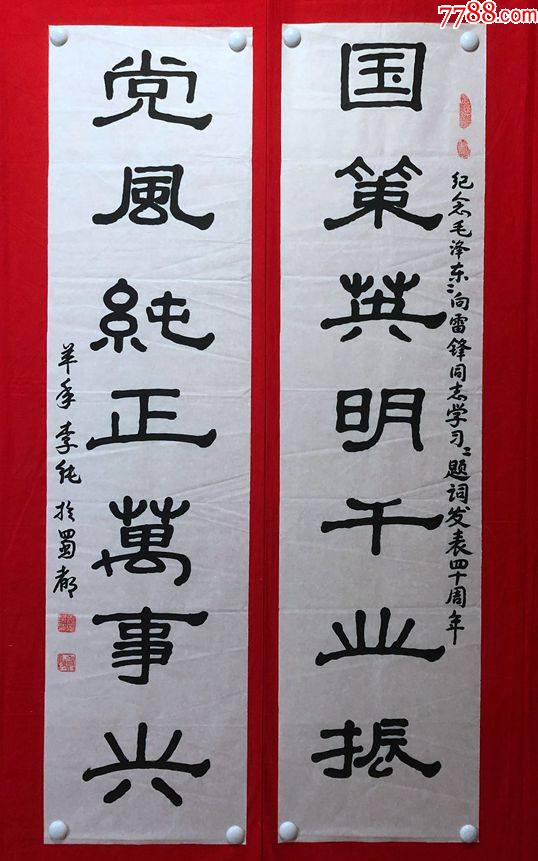 7788.com
国策英明千业振
纪念毛泽东“向雷锋同志学习”题词发表四十周年
党風純正萬事兴
羊年李纯於蜀都